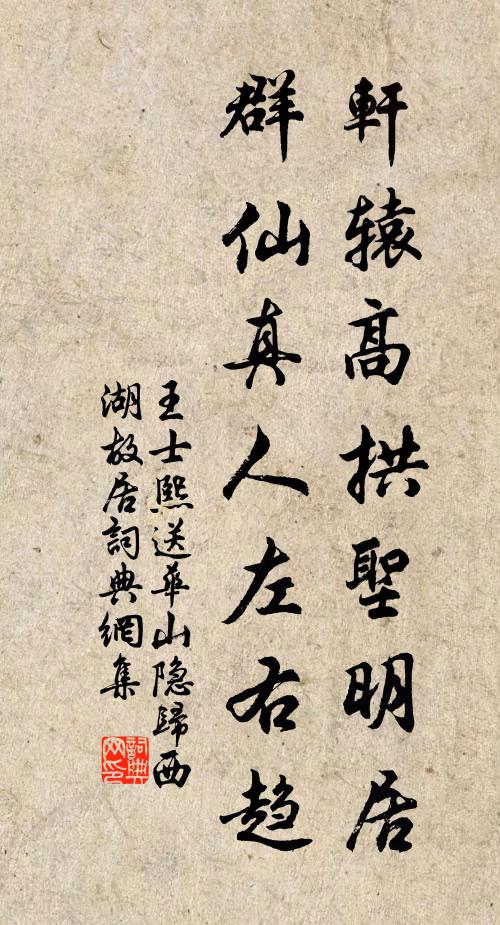 軒辕高拱聖明居
群仙真人左右趋
王士熙送華山隐歸西
湖故居詞典網集
詞典网印